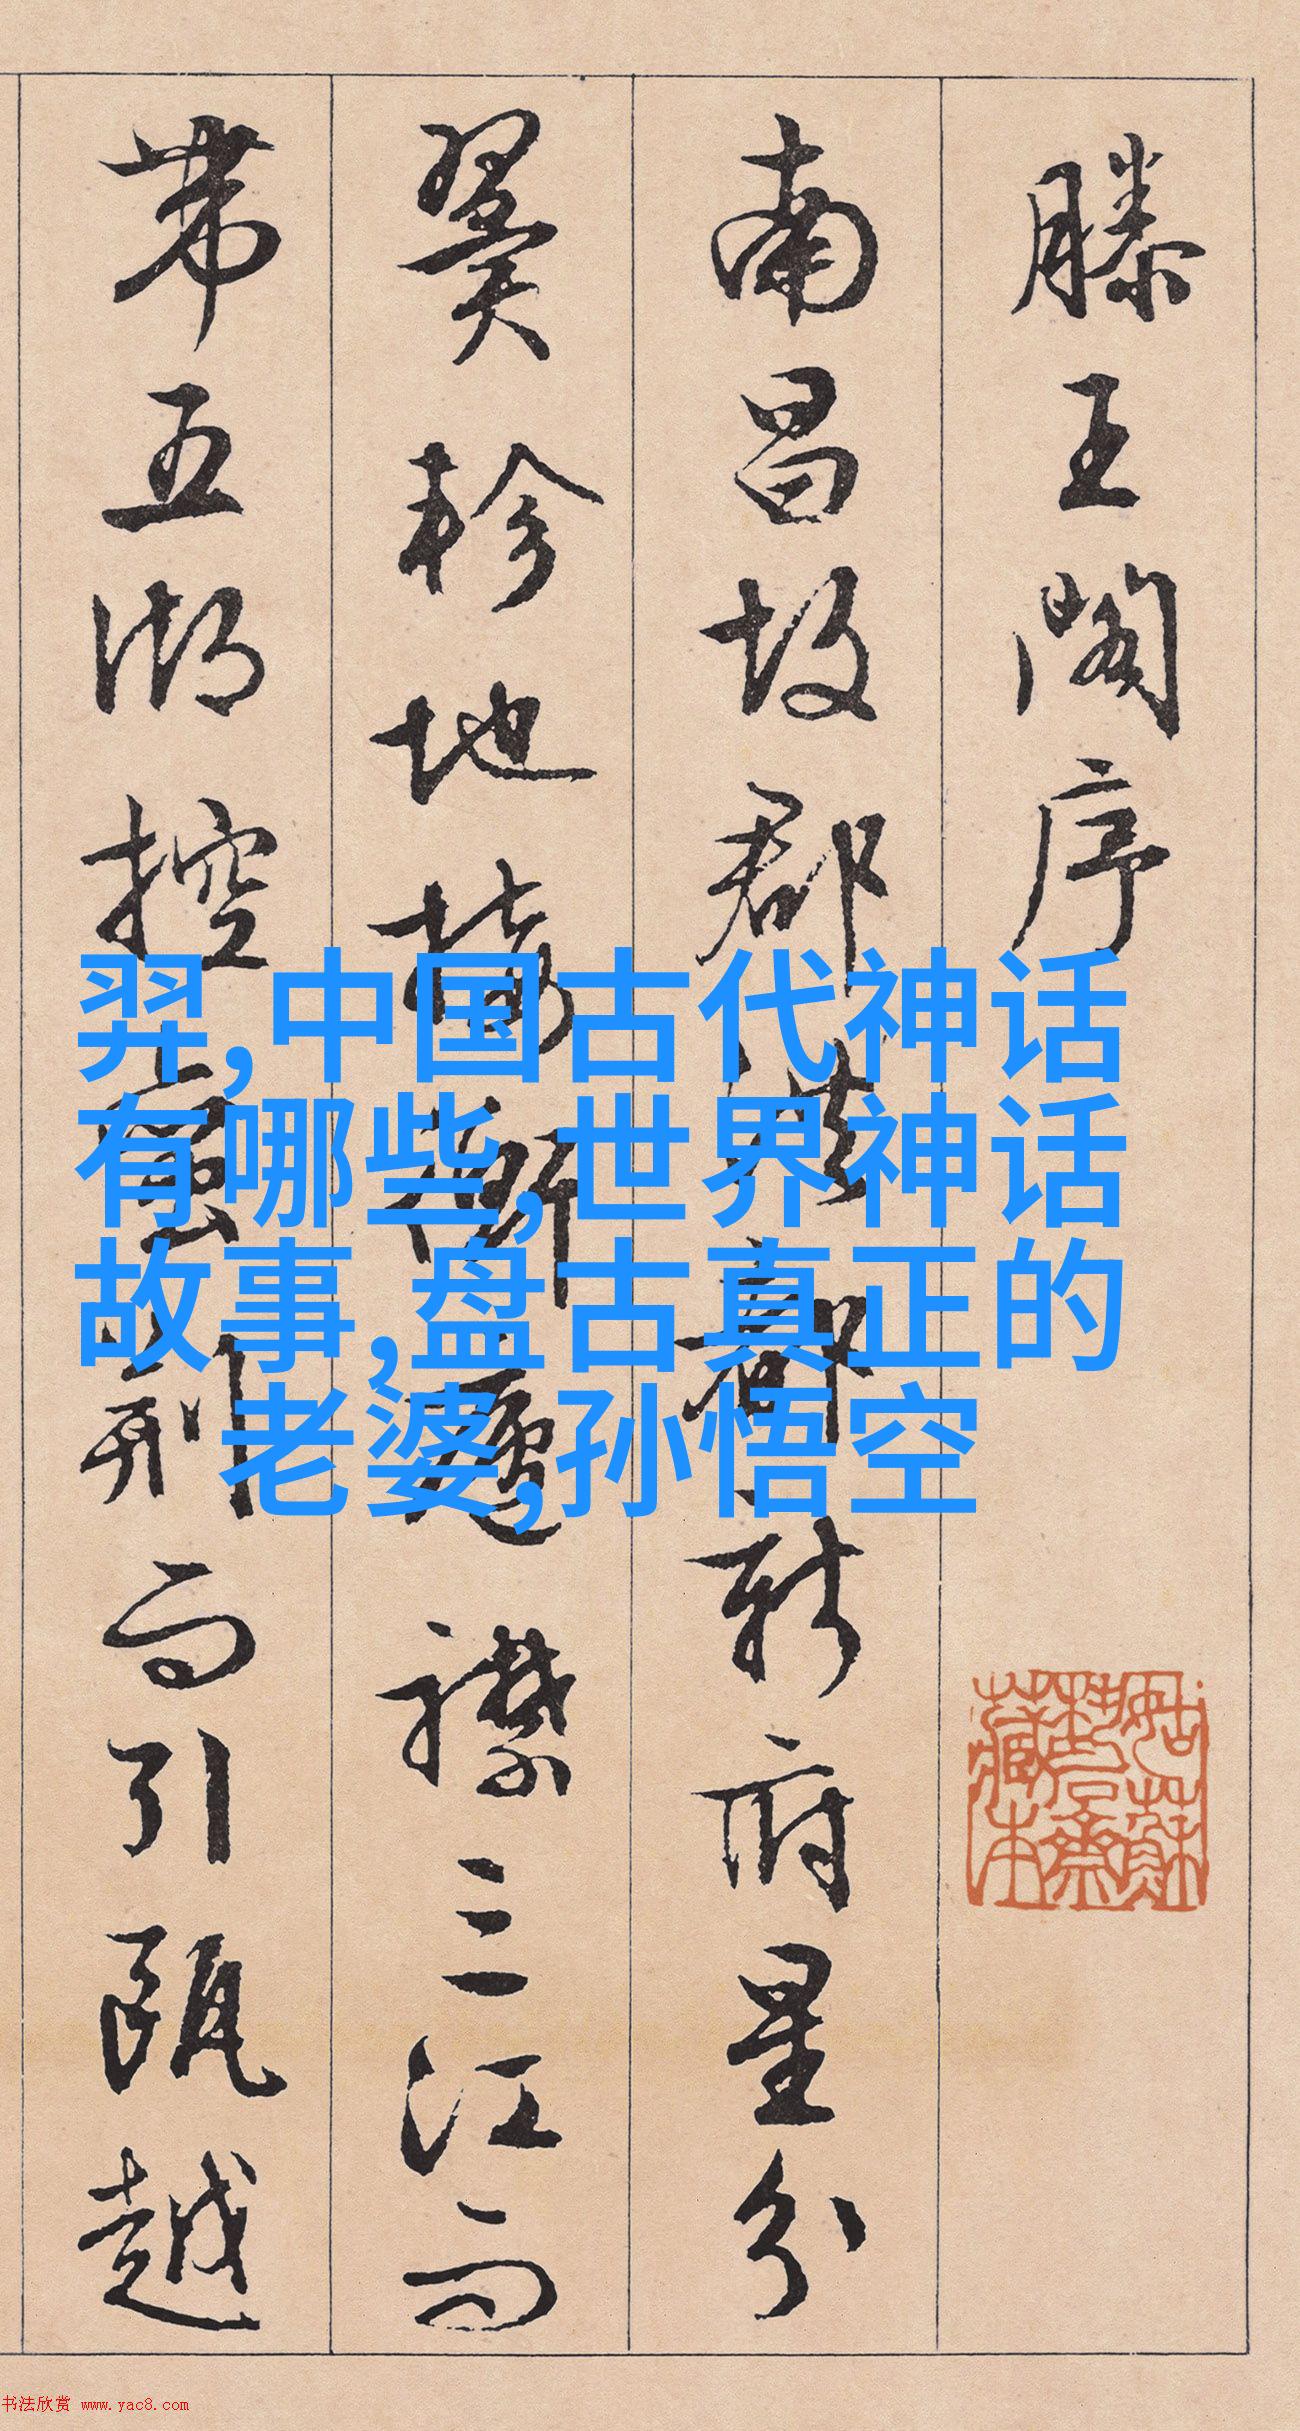 滕王阁序
南昌故郡洪都新府星分
翼轸地接衡庐襟三江而
带五湖控蛮荆而引瓯越
羿,中国古代神话
有哪些,世界神话
故事,盘古真正的
老婆,孙悟空
书法欣赏 www.yac8.com